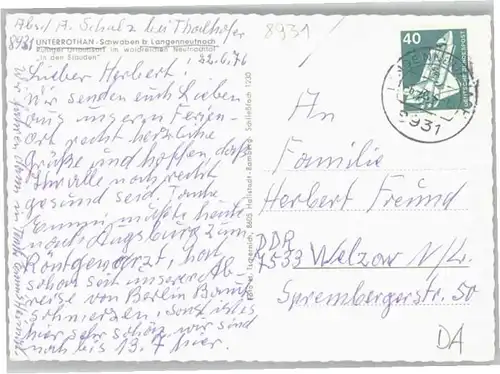 Abs./ A. Schalz bei Thalhofer
8931
8931
UNTERROTHAN - Schwaben b. Langenneufnoch
Ruhiger Urlaubsort im waldreichen Neufnachtal
"In den Stauden"
22.6.76
Lieber Herbert!
Wir senden euch Lieben
aus unserem Ferien-
Ort recht herzliche
Grüße und hoffen, daß
Ihr alle noch recht
gesund seid. Tante
Emmi müßte heute
nach Augsburg zum
Röntgenarzt, hat
schon seit unserer Ab-
reise von Berlin
schmerzen. Sonst ist es
hier sehr schön, wir sind
noch bis 13.7 hier.
Wir fahren dann
8605 Hallstadt - Bamberg Schließfach 1220
40
DEUTSCHE BUNDESPOST
8931
An
Familie
Herbert Freund
DDR
7533 Welzow N/L.
Sprembergerstr. 50
DA